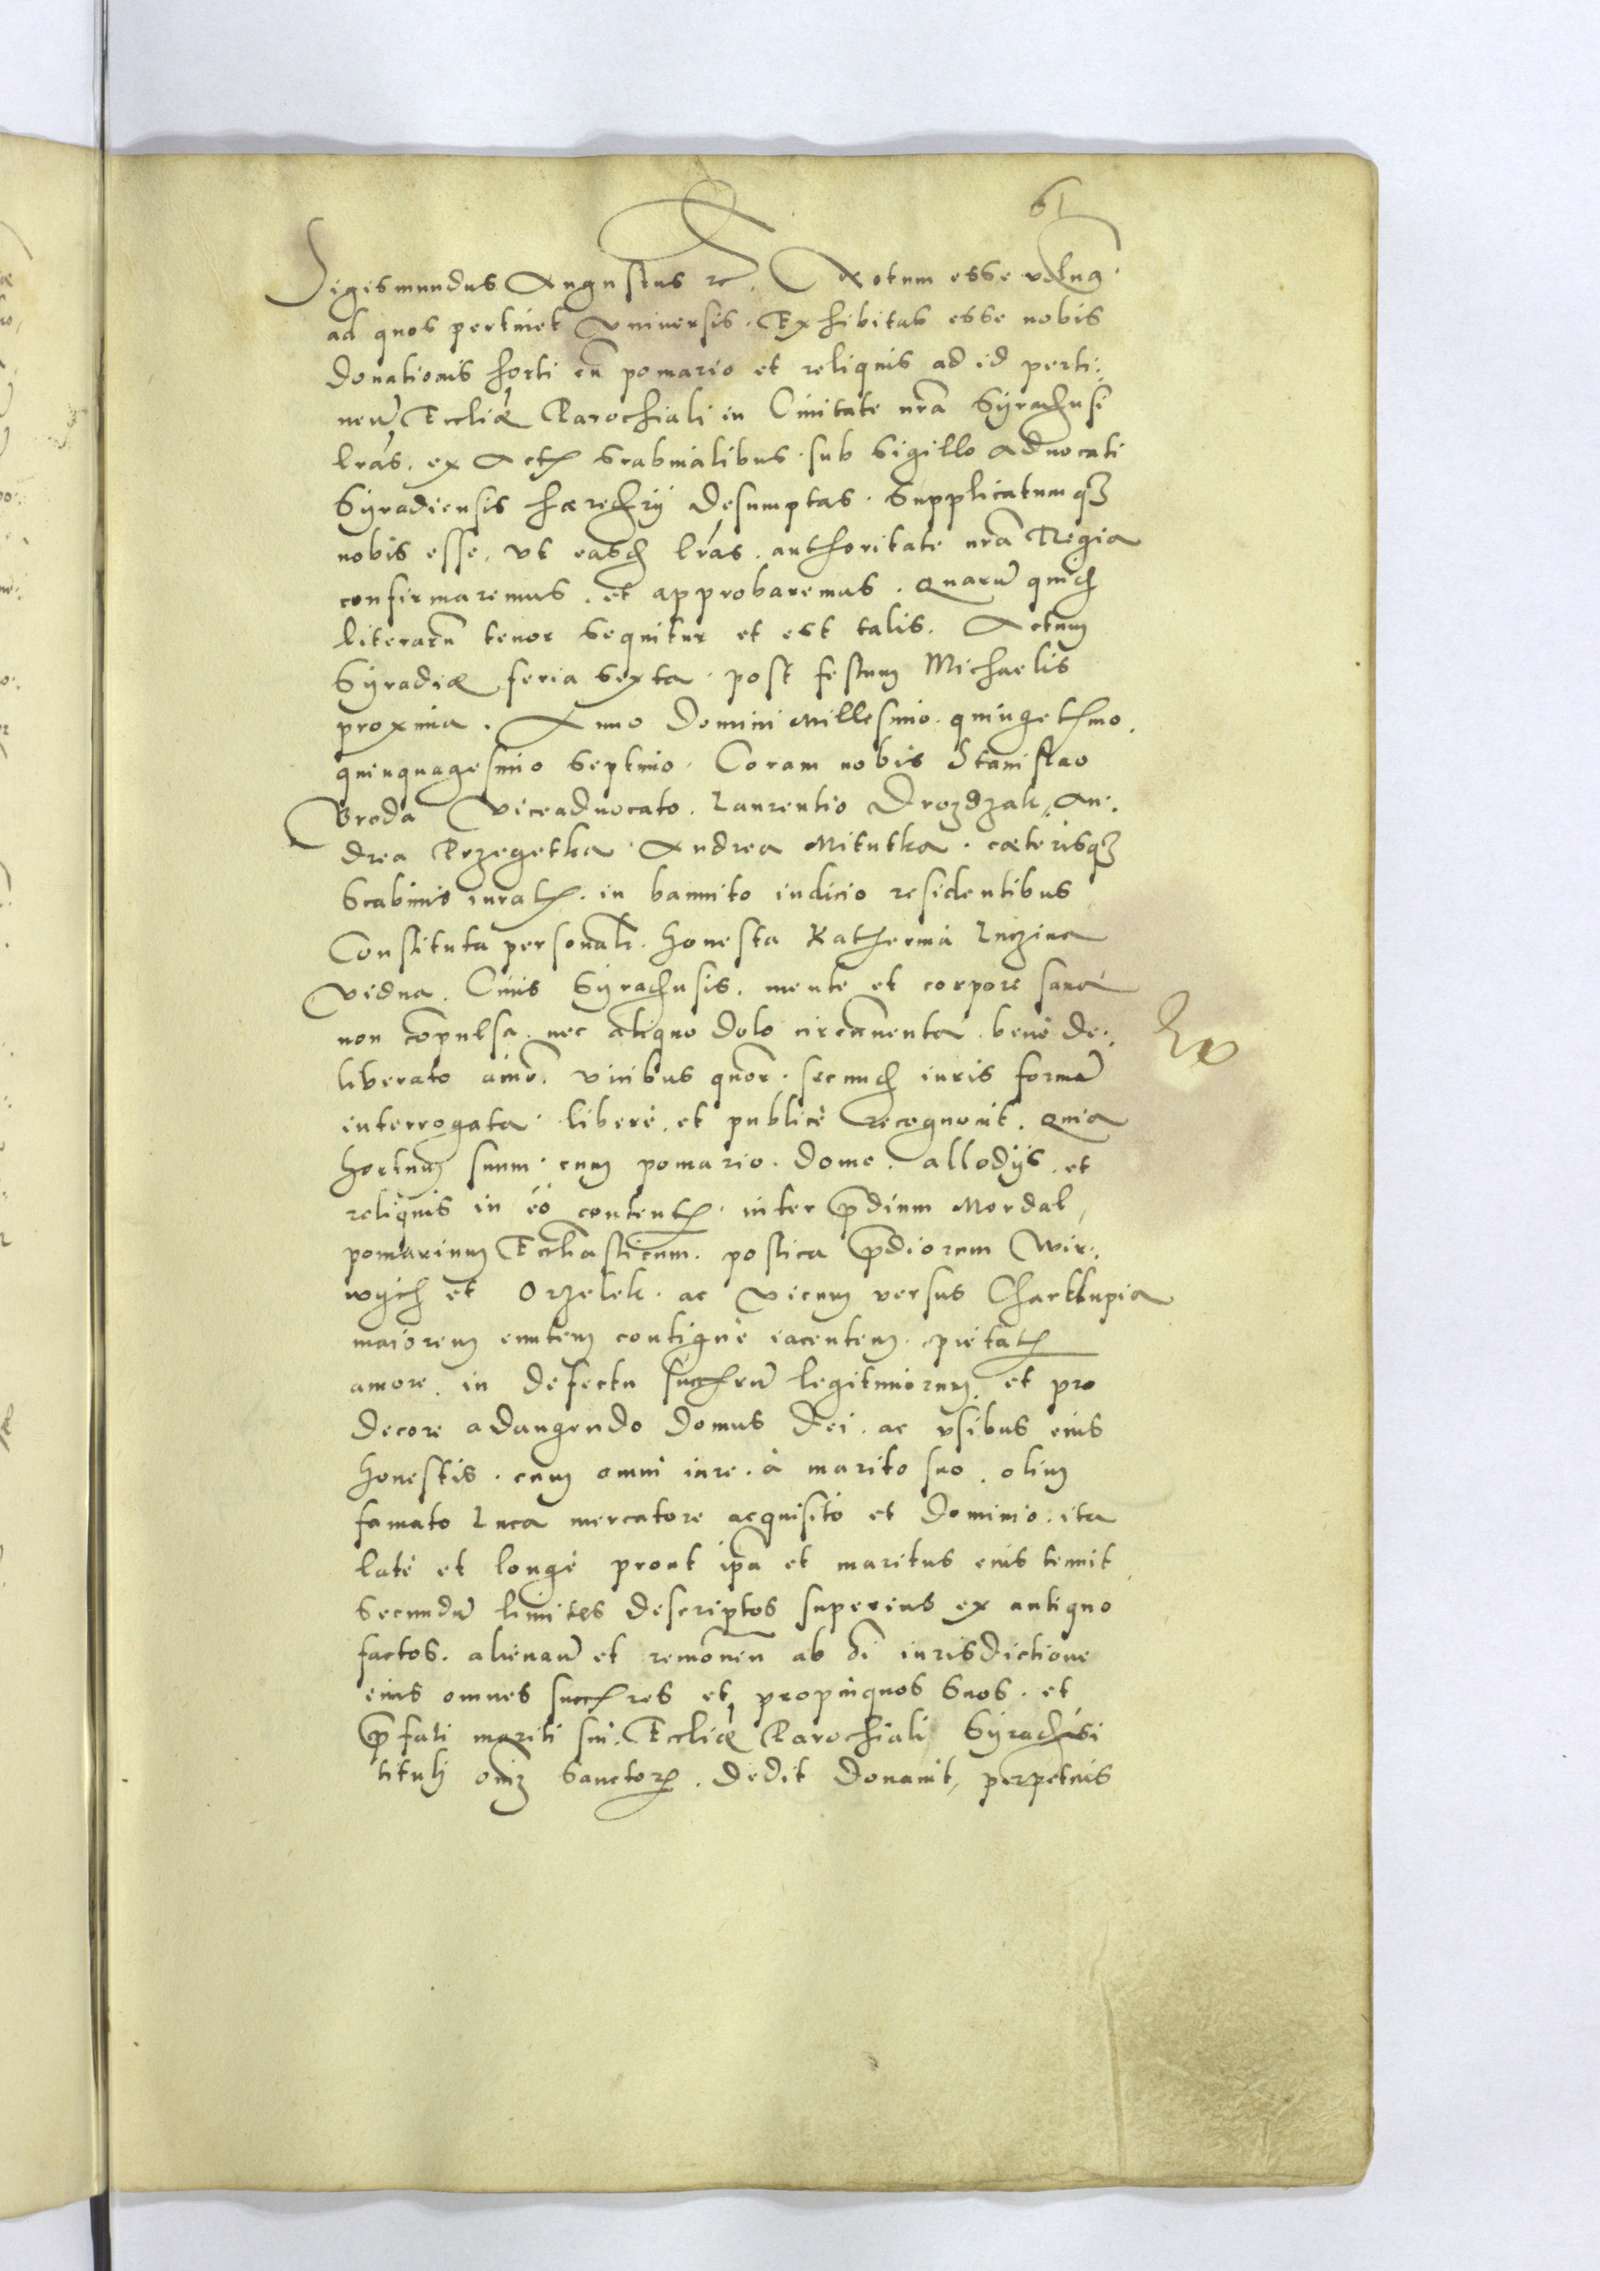 61
Sigismundus Augustus etc. Notum esse
ad quos pertinet Universis. Exhibitas esse nobis
donationis horti cū pomario et reliquis ad id perti:
neñ Eccliæ Parochiali in Civitate nrã Syradiensi
lrãs, ex Actis Scabinalibus sub sigillo Advocati
Syradiensis hæreditarij desumptas. Supplicatumq3
nobis esse, ut easdem lrãs authoritate nrã Regia
confirmaremus et approbaremus. Quarū quidem
literarū tenor sequitur et est talis. Actum
Syradiæ feria sexta post festum Michaelis
proxima. Anno Domini Millesimo quingetesimo
quinquagesimo septimo. Coram nobis Stanislao
Broda Viceadvocato. Laurentio Drozdzak, An:
drea Przegetka. Andrea Mitutka. cæterisq3
Scabinis iuratis. in bannito iudicio residentibus
Constituta personalr. honesta Katherina Luczina
vidua. Civis Syradiensis. mente et corpore sana
non cōpulsa nec aliquo dolo circūventa. bene de:
liberato aīmo. vicibus secundum iuris formā
interrogata. liberè et publicè recognovit. Quia
hortum suum cum pomario. domo. allodijs. et
reliquis in eo contentis. inter p̄dium Mordal,
pomarium Ecclīasticum. postica p̄diorum Wir:
wych et Orzelek. ac vicum versus Charlupia
maiorem euntem contiguè iacentem. pietatis
amore. in defectu succesorū legitimorum. et pro
decore adaugendo domus Dei. ac usibus eius
honestis. cum omni iure. à marito suo olim
famato Luca mercatore acquisito et dominio. ita
latè et longè prout ip̄a et maritus eius tenuit
secundū limites descriptos superius ex antiquo
factos. alienañ et removeñ ab ōi iurisdictione
eius omnes succesores et propinquos suos. et
p̄fati mariti sui. Eccliæ Parochiali Syradiensi
tituli oīm Sanctorum. dedit donavit, perpetuis